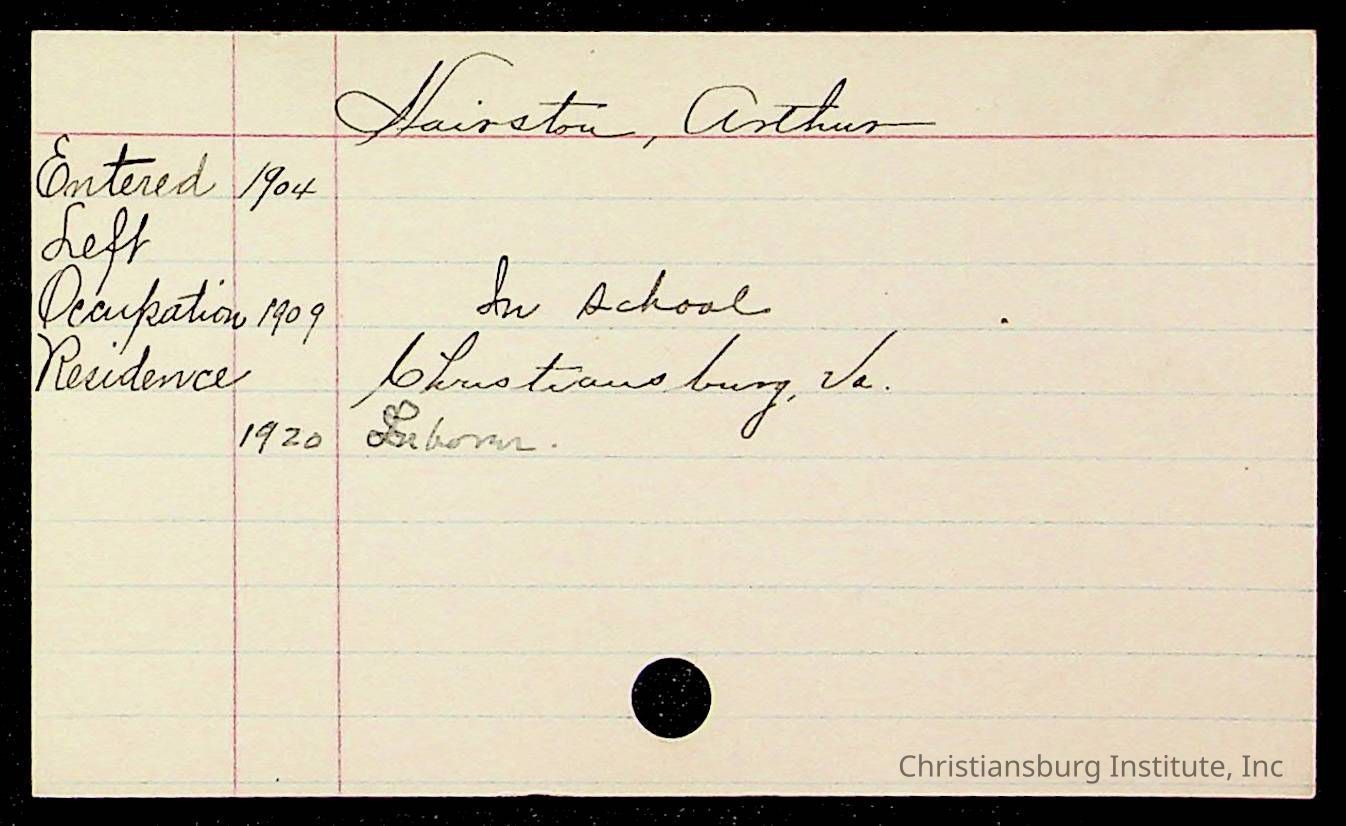 Hairston, Arthur
Entered 1904
Left
Occupation 1909 In school
Residence Christiansburg, Va.
1920 Laborer.
Christiansburg Institute, Inc